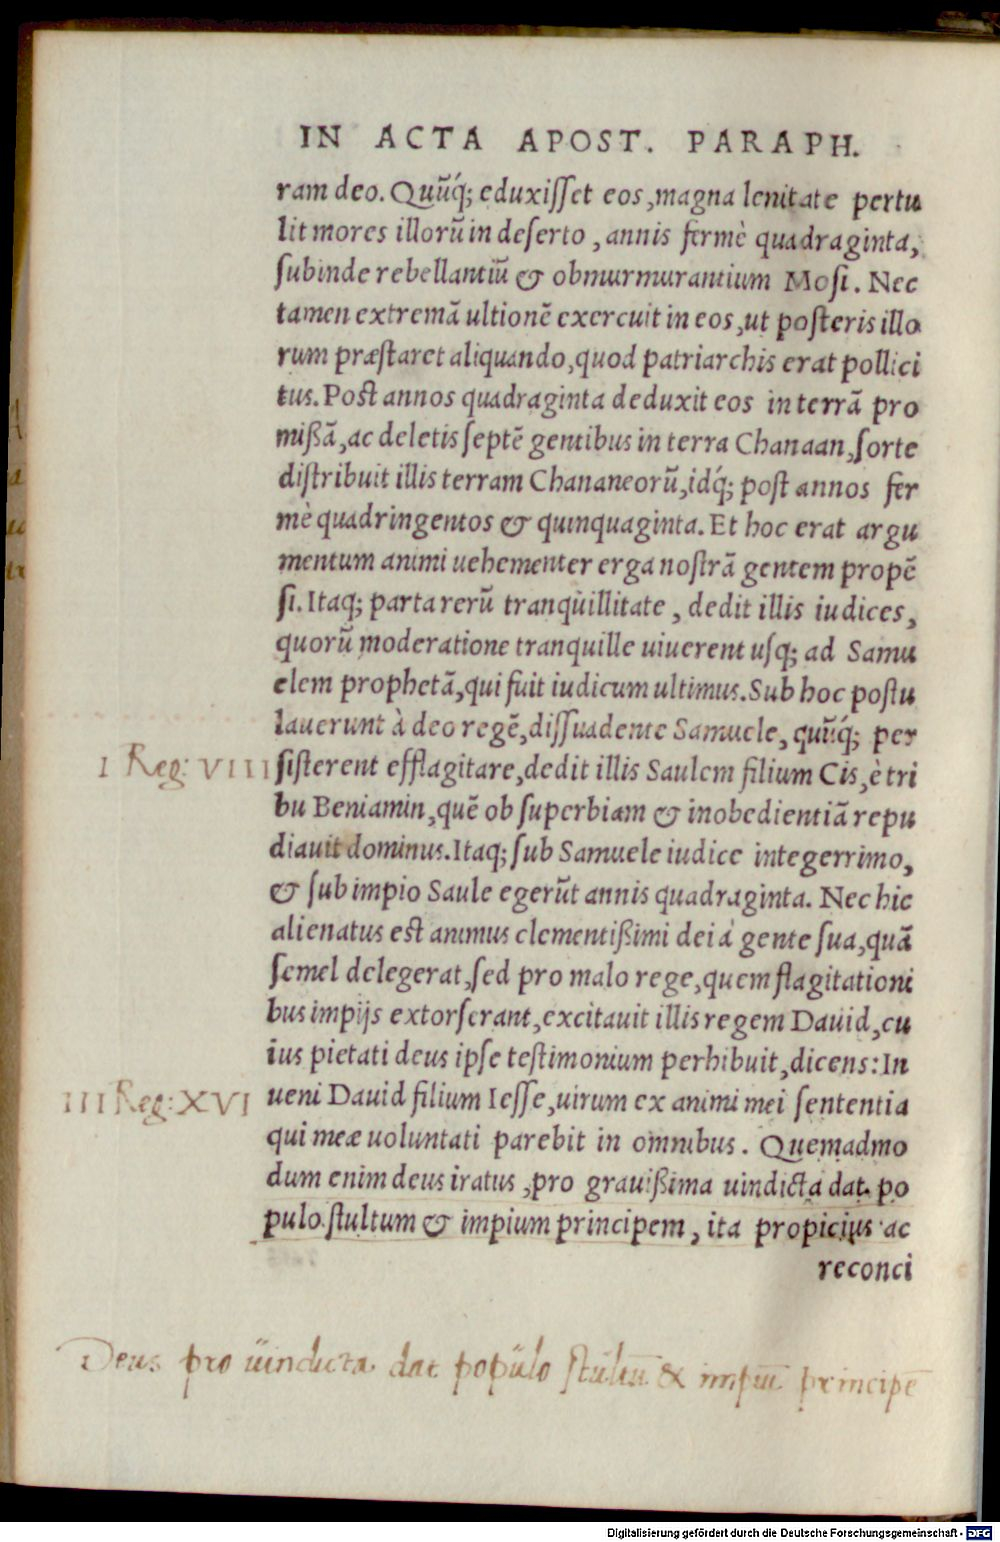 IN ACTA APOST. PARAPH.
ram deo. Quũq́; eduxiſſet eos, magna lenitate pertu
lit mores illorũ in deſerto, annis fermè quadraginta,
ſubinde rebellantiũ & obmurmurantium Moſi. Nec
tamen extremã ultionẽ exercuit in eos, ut poſteris illo
rum præſtaret aliquando, quod patriarchis erat pollici
tus. Poſt annos quadraginta deduxit eos in terrã pro
mißã, ac deletis ſeptẽ gentibus in terra Chanaan, ſorte
diſtribuit illis terram Chananeorũ, idq́; poſt annos fer
mè quadringentos & quinquaginta. Et hoc erat argu
mentum animi uehementer erga noſtrã gentem propẽ
ſi. Itaq; parta rerũ tranquillitate, dedit illis iudices,
quorũ moderatione tranquille uiuerent uſq; ad Samu
elem prophetã, qui fuit iudicum ultimus. Sub hoc poſtu
lauerunt à deo regẽ, diſſuadente Samuele, quũq́; per
I Reg: VIII ſiſterent efflagitare, dedit illis Saulem filium Cis, è tri
bu Beniamin, quẽ ob ſuperbiam & inobedientiã repu
diauit dominus. Itaq; ſub Samuele iudice integerrimo,
& ſub impio Saule egerũt annis quadraginta. Nec hic
alienatus eſt animus clementißimi dei à gente ſua, quã
ſemel delegerat, ſed pro malo rege, quem flagitationi
bus impijs extorſerant, excitauit illis regem Dauid, cu
ius pietati deus ipſe teſtimonium perhibuit, dicens: In
III Reg: XVI ueni Dauid filium Ieſſe, uirum ex animi mei ſententia
qui meæ uoluntati parebit in omnibus. Quemadmo
dum enim deus iratus, pro grauißima uindicta dat po
pulo ſtultum & impium principem, ita propicius ac
reconci
Deus pro uindicta dat populo ſtultũ & impiũ principẽ
Digitalisierung gefördert durch die Deutsche Forschungsgemeinschaft - DFG